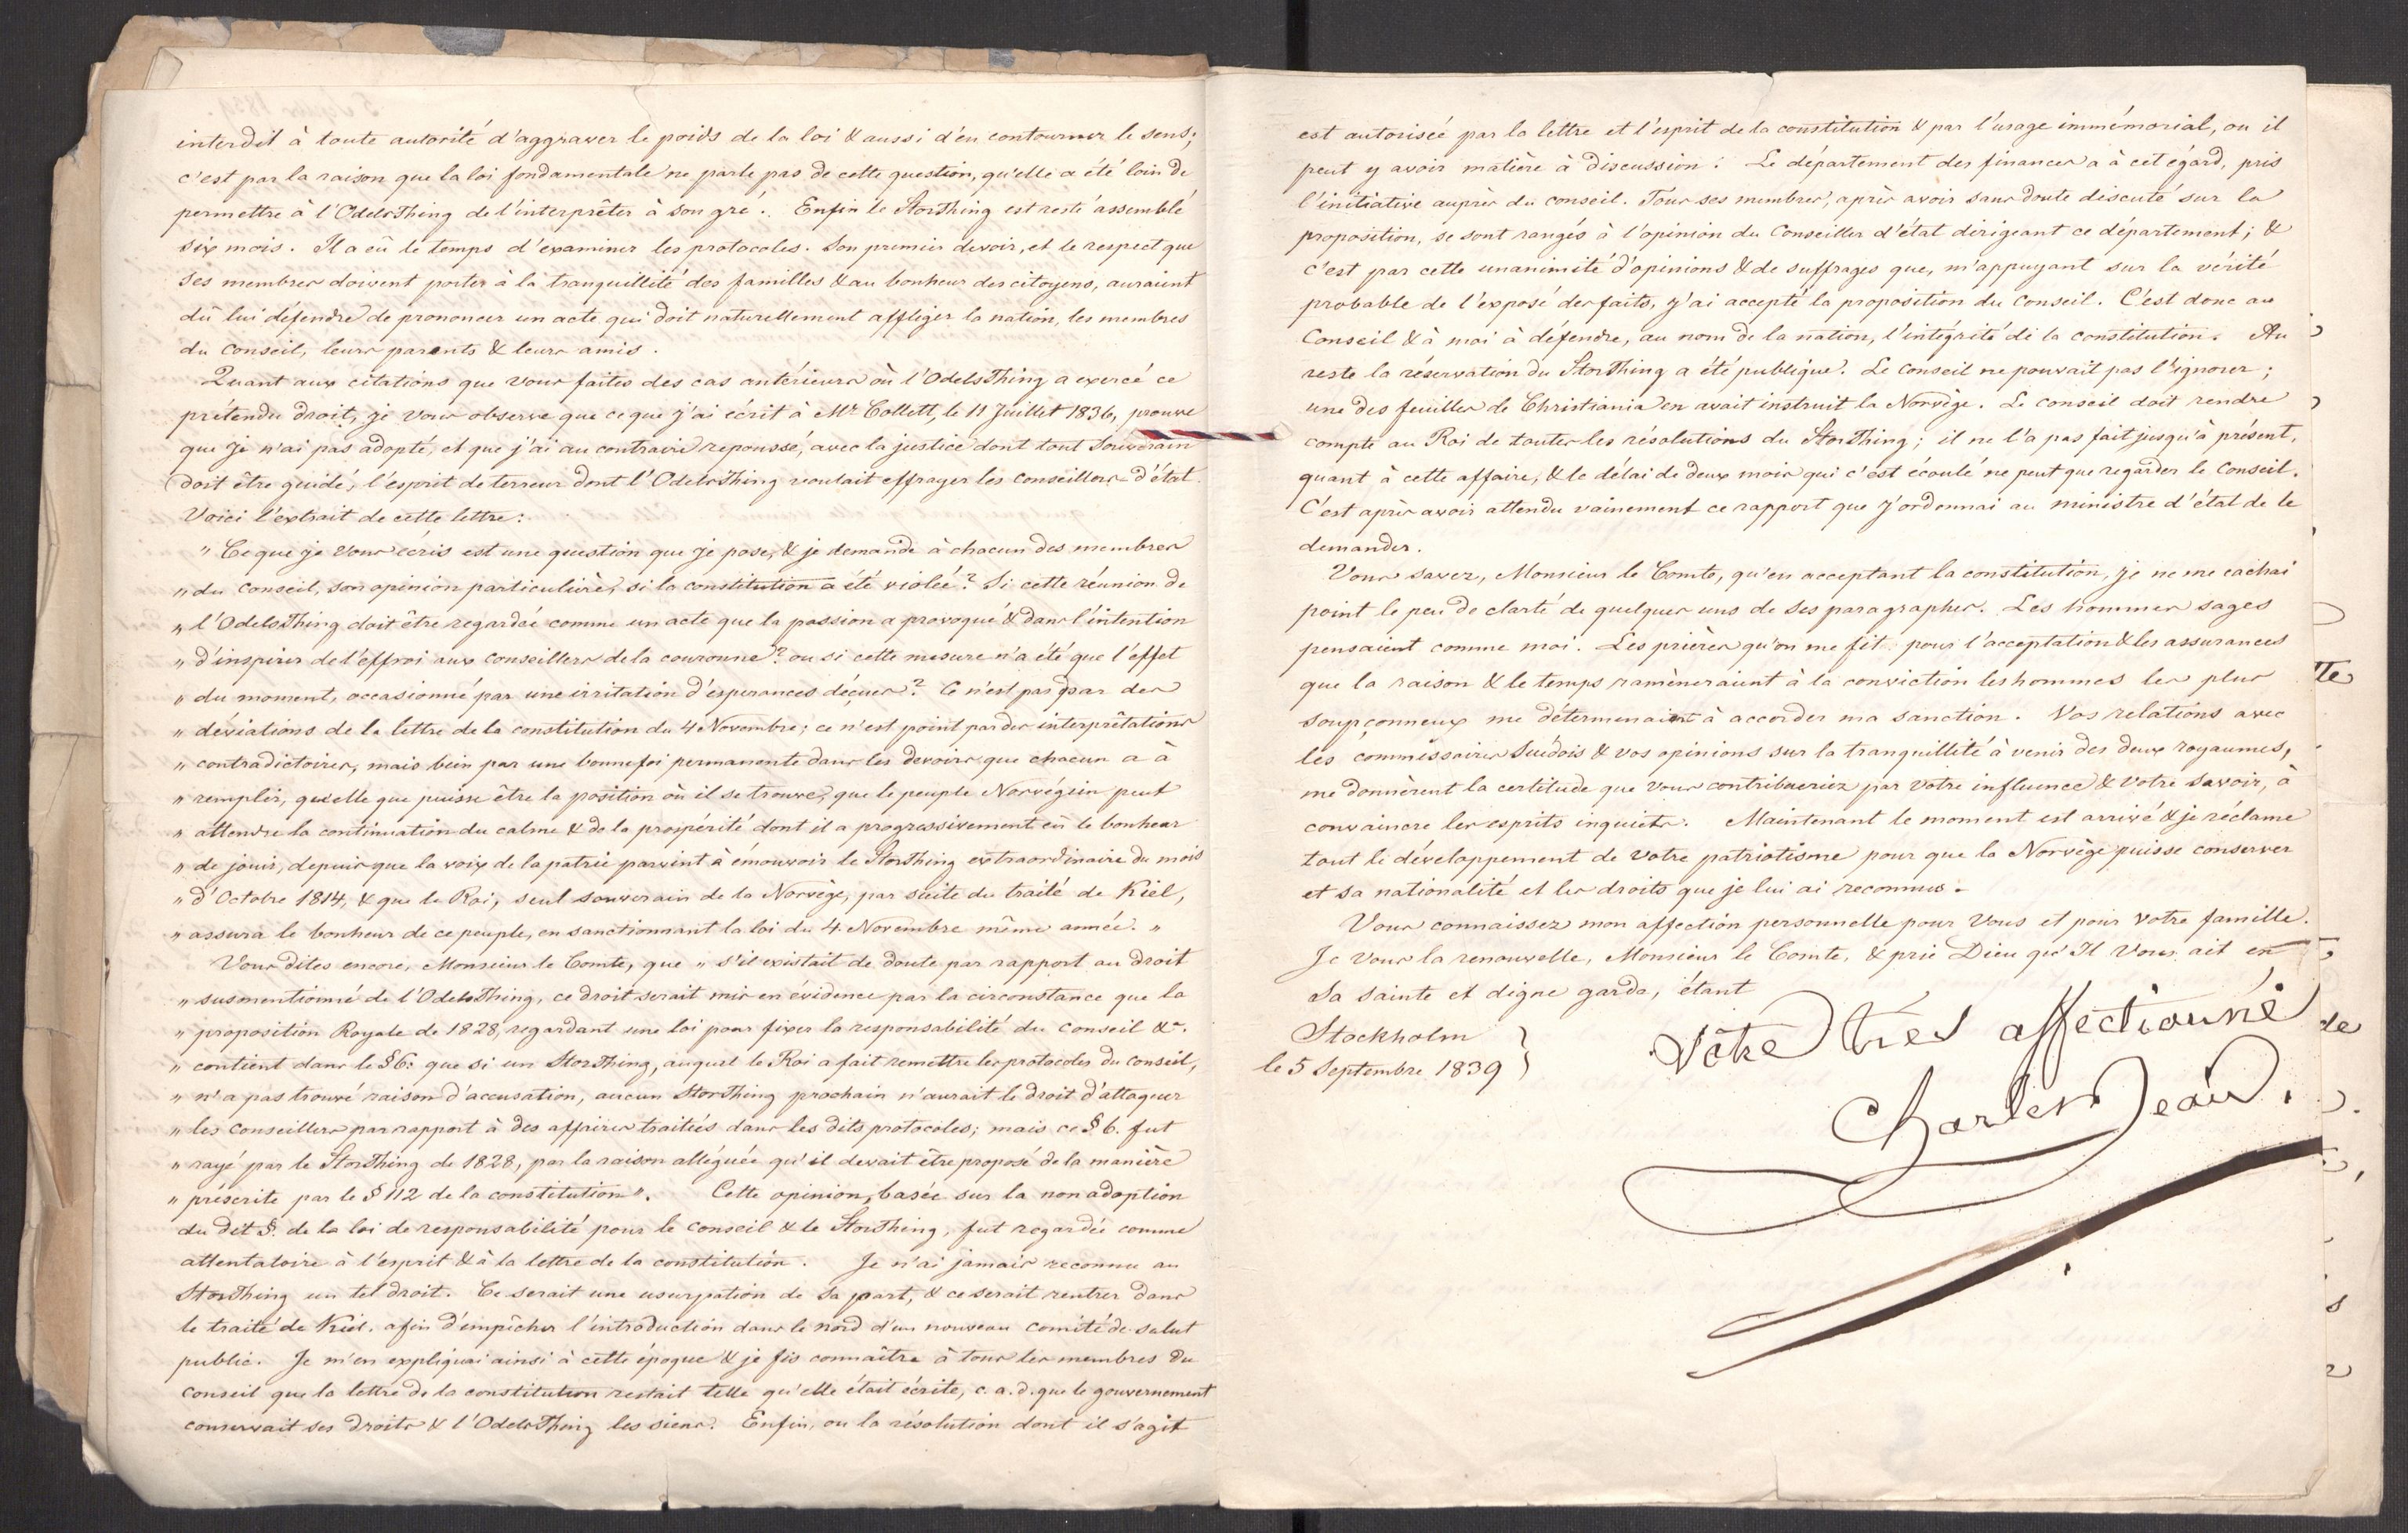 interdit à toute autorité d'aggraver le poids de la loi & aussi d'en contourner le sens;
c'est par la raison que la loi fondamentale ne parle pas de cette question, qu'elle a été loin de
permettre à l'OdelsThing de l'interprêter à son gré. Enfin le StorThing est resté assemblé
six mois. Il a eû le temps d'examiner les protocoles. Son premier devoir, et le respect que
ses membres doivent porter à la tranquillité des familles & au bonheur des citoyens, auraient
dû lui défendre de prononcer un acte qui doit naturellement affliger la nation, les membres
du Conseil, leurs parents & leurs amis.
Quant aux citations que vous faites des cas antérieurs où l'OdelsThing a exercé ce
prétendu droit, je vous observe que ce que j'ai écrit à Mr Collett, le 11 Juillet 1836, prouve
que je n'ai pas adopté, et que j'ai au contraire repoussé, avec la justice dont tout Souverain
doit être guidé, l'esprit de terreur dont l'OdelsThing voulait effrayer les conseillers d'état.
Voici l'extrait de cette lettre:
" Ce que je vous écris est une question que je pose, & je demande à chacun des membres
" du Conseil, son opinion particulière, si la constitution a été violée? Si cette réunion de
" l'OdelsThing doit être regardée comme un acte que la passion a provoqué & dans l'intention
" d'inspirer de l'effroi aux conseillers de la couronne? ou si cette mesure n'a été que l'effet
" du moment, occasionné par une irritation d'espérances déçues? Ce n'est pas par des
" déviations de la lettre de la constitution du 4 Novembre; ce n'est point par des interprêtations
" contradictoires, mais bien par une bonne foi permanente dans les devoirs que chacun a à
" remplir, quelle que puisse être la position où il se trouve, que le peuple Norvégien peut
" attendre la continuation du calme & de la prospérité dont il a progressivement eû le bonheur
" de jouir, depuis que la voix de la patrie parvint à émouvoir le StorThing extraordinaire du mois
" d'Octobre 1814, & que le Roi, seul souverain de la Norvège, par suite du traité de Kiel,
" assura le bonheur de ce peuple, en sanctionnant la loi du 4 Novembre même année. "
Vous dites encore, Monsieur le Comte, que " s'il existait de doute par rapport au droit
" susmentionné de l'OdelsThing, ce droit serait mis en évidence par la circonstance que la
" proposition Royale de 1828, regardant une loi pour fixer la responsabilité du Conseil &c.
" contient dans le § 6: que si un StorThing, auquel le Roi a fait remettre les protocoles du Conseil,
" n'a pas trouvé raison d'accusation, aucun StorThing prochain n'aurait le droit d'attaquer
" les Conseillers par rapport à des affaires traitées dans les dits protocoles; mais ce § 6. fut
" rayé par le StorThing de 1828, par la raison alléguée qu'il devait être proposé de la manière
" préscrite par le § 112 de la constitution". Cette opinion, basée sur la non adoption
du dit §. de la loi de responsabilité pour le Conseil & le StorThing, fut regardée comme
attentatoire à l'esprit & à la lettre de la constitution. Je n'ai jamais reconnu au
StorThing un tel droit. Ce serait une usurpation de sa part, & ce serait rentrer dans
le traité de Kiel, afin d'empêcher l'introduction dans le nord d'un nouveau comité de salut
public. Je m'en expliquai ainsi à cette époque & je fis connaître à tous les membres du
Conseil que la lettre de la constitution restait telle qu'elle était écrite, c. a. d. que le gouvernement
conservait ses droits & l'OdelsThing les siens. Enfin, ou la résolution dont il s'agit
est autorisée par la lettre et l'esprit de la constitution & par l'usage immémorial, ou il
peut y avoir matière à discussion. Le département des finances a à cet égard, pris
l'initiative auprès du conseil. Tous ses membres, après avoir sans doute discuté sur la
proposition, se sont rangés à l'opinion du Conseiller d'état dirigeant ce département; &
c'est par cette unanimité d'opinions & de suffrages que, m'appuyant sur la vérité
probable de l'exposé des faits, j'ai accepté la proposition du Conseil. C'est donc au
Conseil & à moi à défendre, au nom de la nation, l'intégrité de la constitution. Au
reste la réservation du StorThing a été publique. Le Conseil ne pouvait pas l'ignorer;
une des feuilles de Christiania en avait instruit la Norvège. Le conseil doit rendre
compte au Roi de toutes les résolutions du StorThing; il ne l'a pas fait jusqu'à présent,
quant à cette affaire, & le délai de deux mois qui c'est écoulé ne peut que regarder le Conseil.
C'est après avoir attendu vainement ce rapport que j'ordonnai au ministre d'état de le
demander.
Vous savez, Monsieur le Comte, qu'en acceptant la constitution, je ne me cachai
point le peu de clarté de quelques uns de ses paragraphes. Les hommes sages
pensaient comme moi. Les prières qu'on me fit pour l'acceptation & les assurances
que la raison & le temps ramèneraient à la conviction les hommes les plus
soupçonneux me déterminaient à accorder ma sanction. Vos relations avec
les commissaires Suédois & vos opinions sur la tranquillité à venir des deux royaumes,
me donnèrent la certitude que vous contribueriez par votre influence & votre savoir, à
convaincre les esprits inquiets. Maintenant le moment est arrivé & je réclame
tout le développement de votre patriotisme pour que la Norvège puisse conserver
et sa nationalité et les droits que je lui ai reconnus.
Vous connaissez mon affection personnelle pour Vous et pour votre famille.
Je Vous la renouvelle, Monsieur le Comte, & prie Dieu qu'Il Vous ait en
Sa sainte et digne garde, étant
Stockholm
le 5 Septembre 1839
Vôtre très affectionné
Charles Jean.